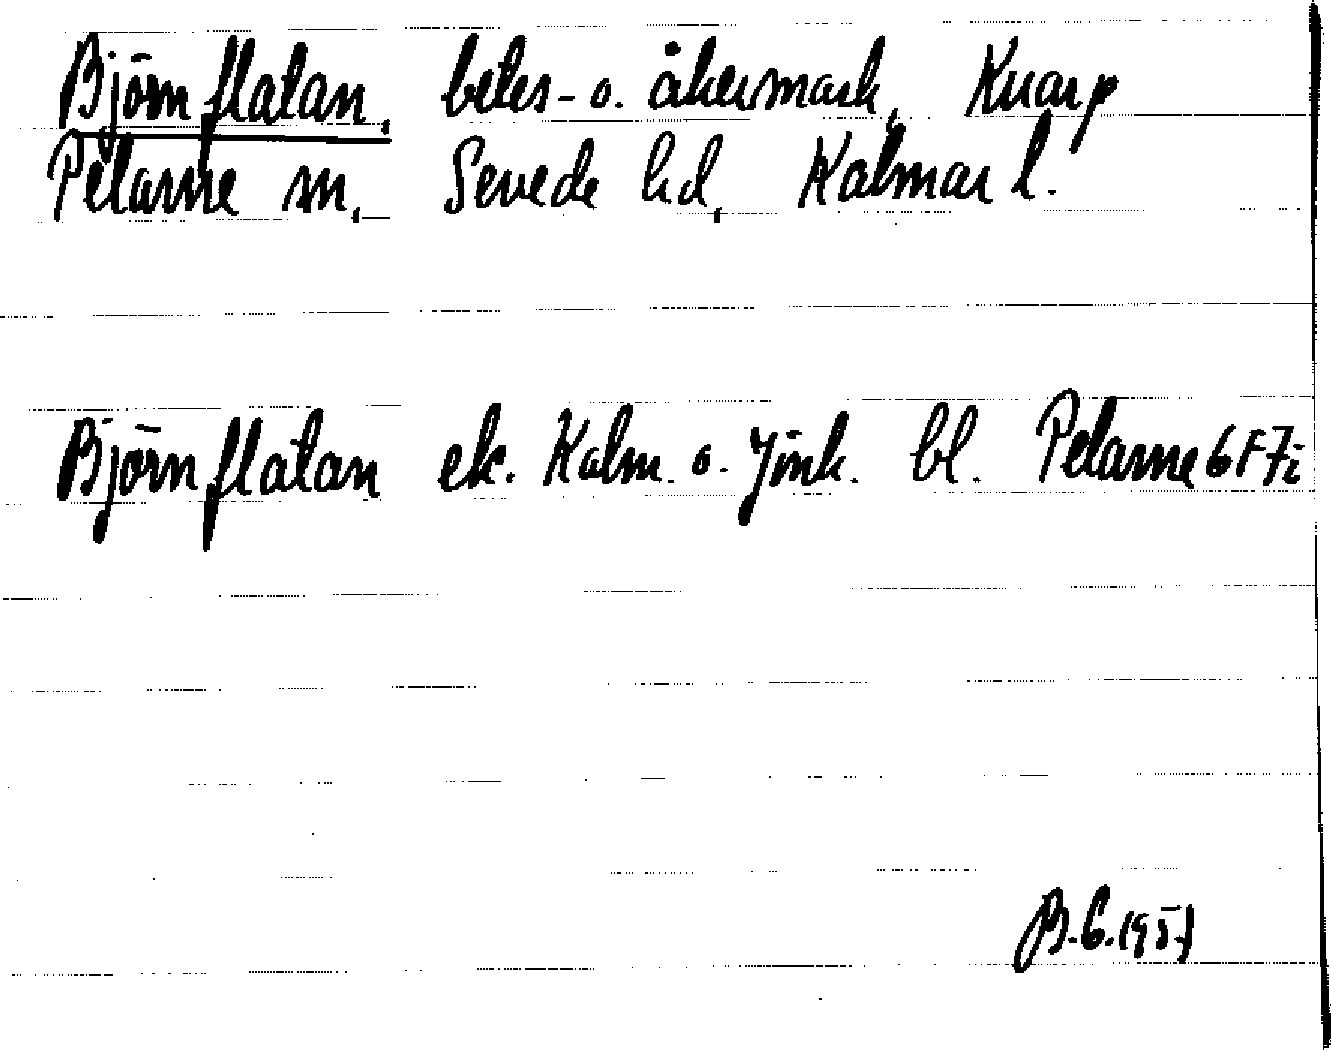 Björnflatan, betes- o. åkermark, Knarp
Pelarne sn, Sevede hd, Kalmar l.
Björnflatan ek. Kalm. o. Jönk. bl. Pelarne 6F7i
B.G. (95.)